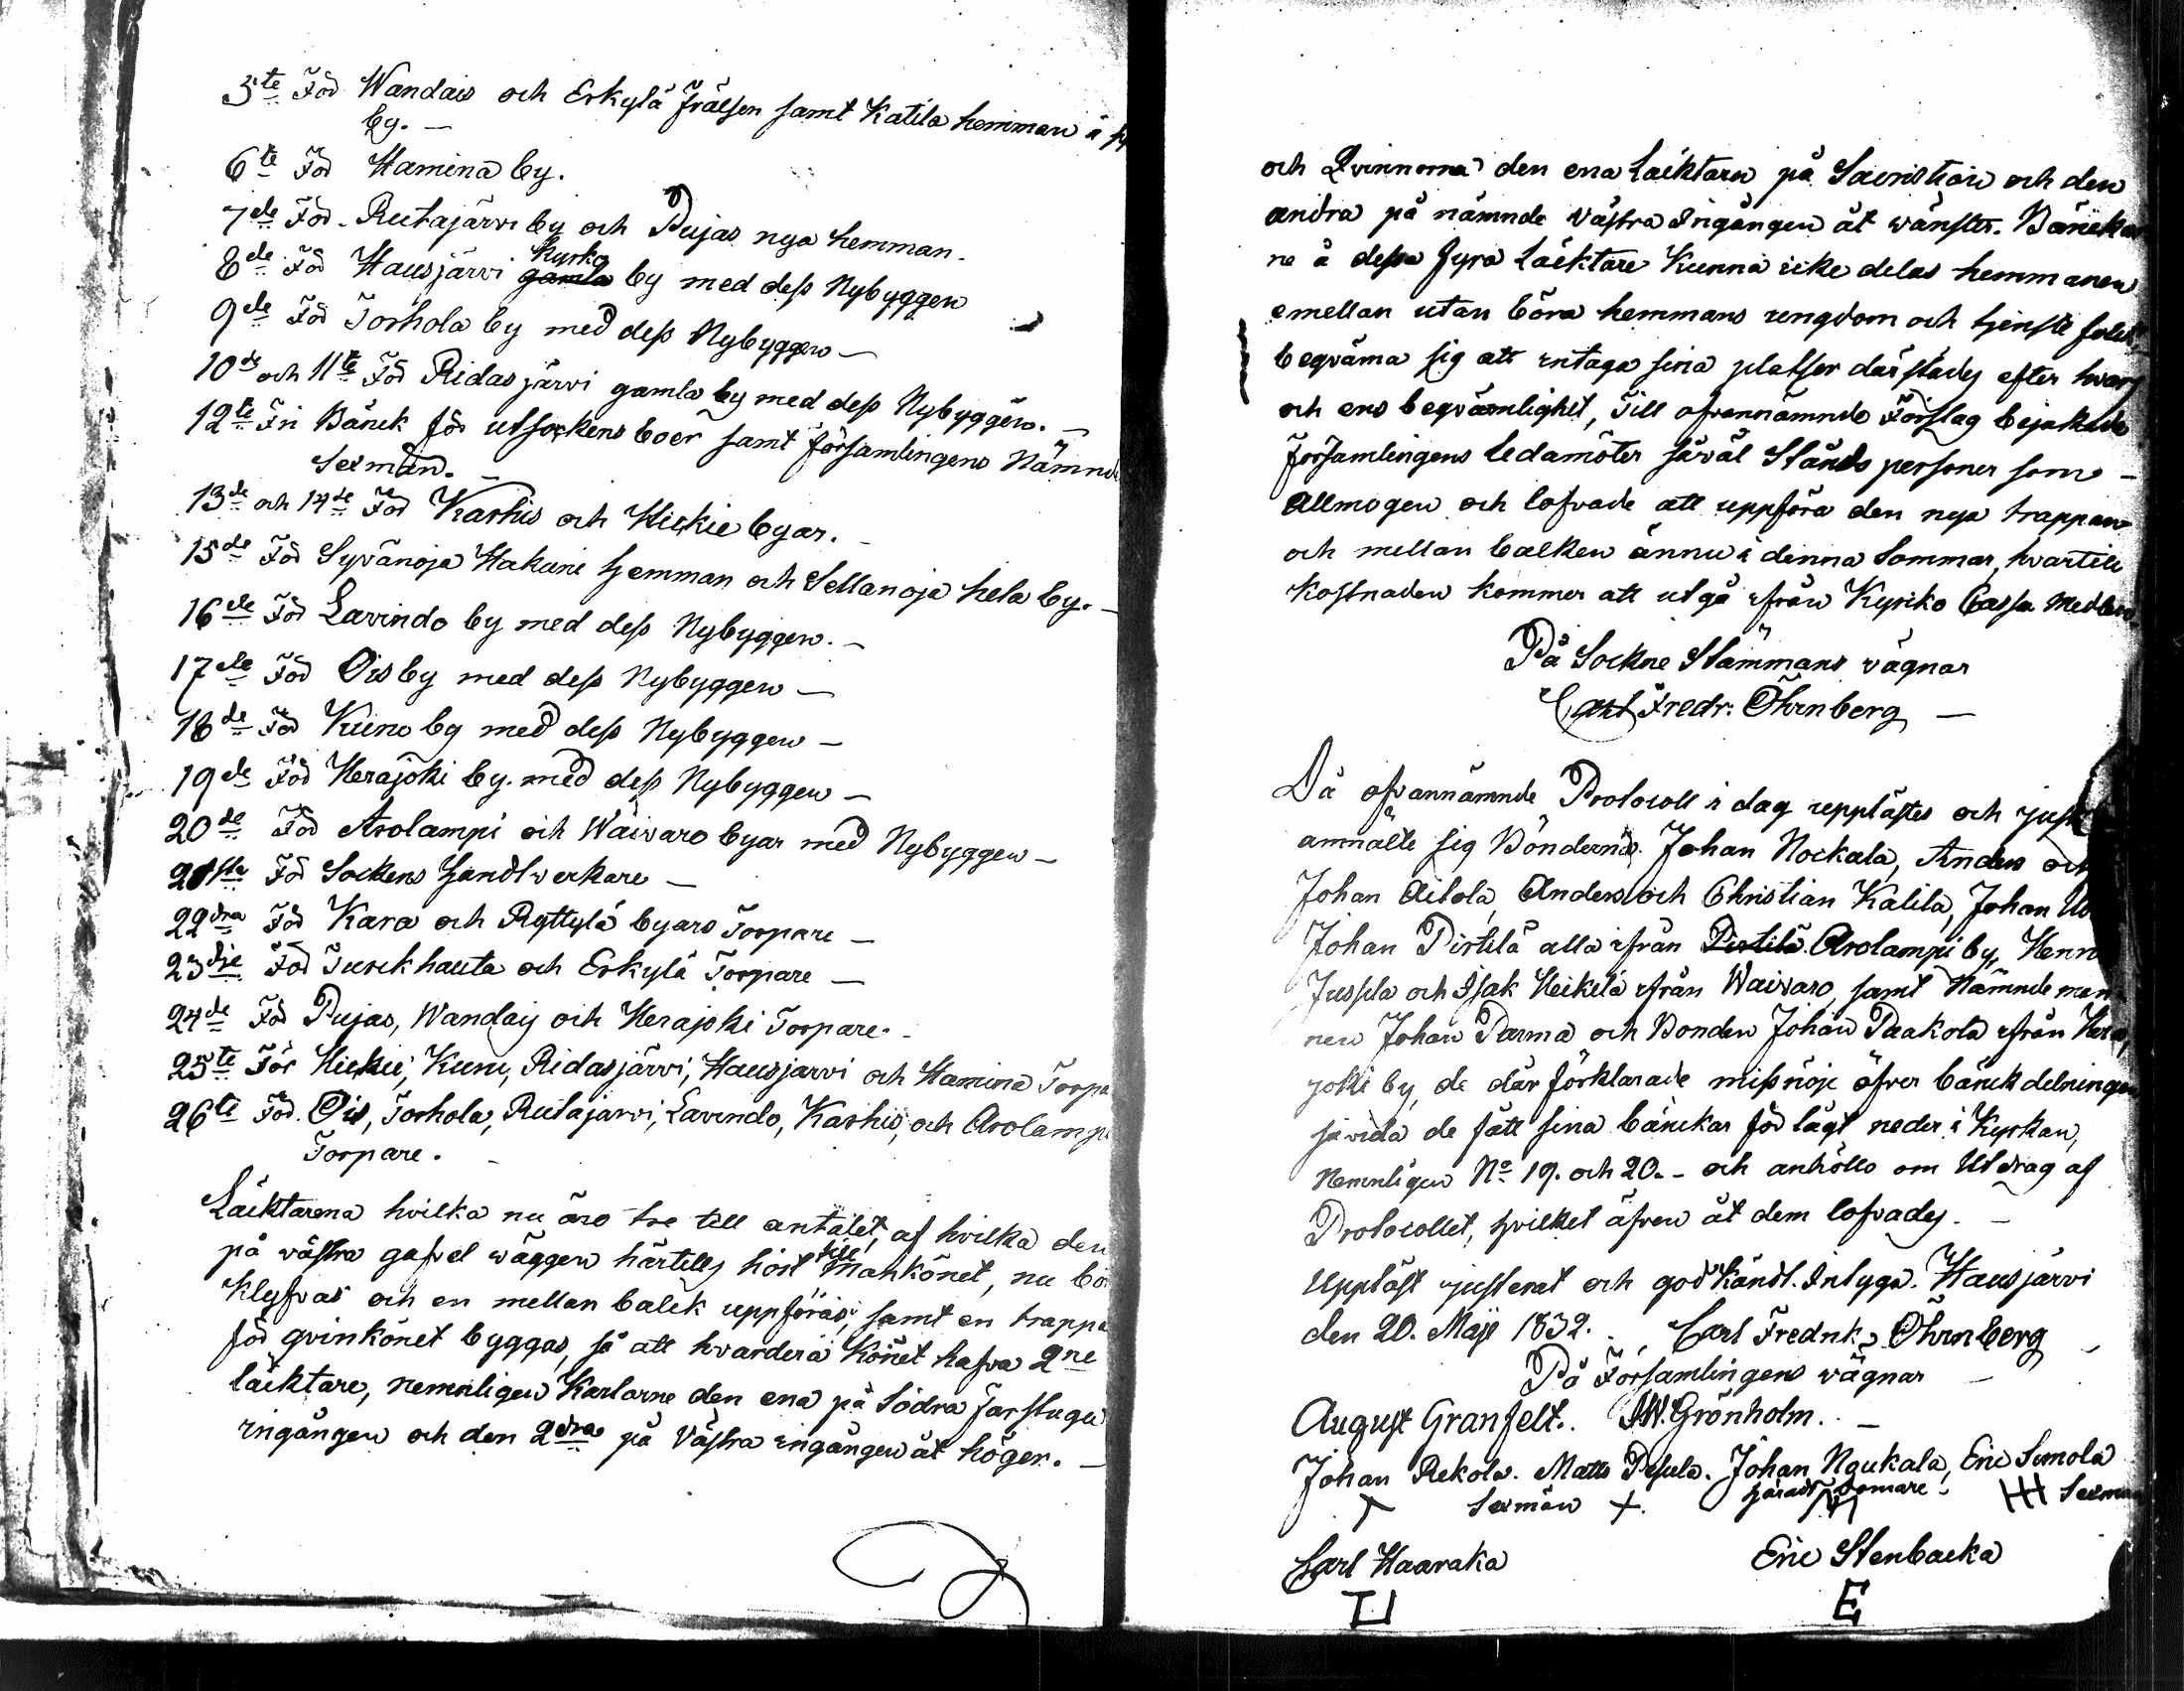 5te För Wandais och Erkylä Frälsen samt Katila hemman å
by. —
6te För Hamina by.
7de För Rutajärvi by och Pujas nya hemman.
8de För Hausjärvi gamla Kyrko by med dess Nybyggen
9de För Torhola by med dess Nybyggen —
10de och 11te För Ridasjärvi gamla by med dess Nybyggen. —
12te En Bänck för utsockens boer samt församlingens Nämnde
Sexmän. —
13de och 14de För Karhis och Hickie byar. —
15de För Syvänoja Hakuni hemman och Sellanoja hela by. —
16de För Lavindo by med dess Nybyggen. —
17de För Ois by med dess Nybyggen —
18de För Kuno by med dess Nybyggen —
19de För Herajoki by. med dess Nybyggen —
20de För Arolampi och Waivaro byar med Nybyggen —
21sta För Sockens Handtverkare —
22dra För Kara och Ryttylä byars Torpare —
23dje För Turckhauta och Erkylä Torpare —
24de För Pujas, Wandais och Herajoki Torpare. —
25te För Hickie, Kuru, Ridasjärvi, Hausjarvi och Hamina Torpa
26te För Ois, Torhola, Rutajarvi, Lavindo, Karhis, och Arolampi
Torpare. —
Läcktarena hvilka nu äro tre till antalet, af hvilka den
på västra gafvel wäggen härtills hört till Mankönet, nu bör
Klyfvas och en mellan balck uppföras, samt en trappa
för qvinkönet byggas, så att hvardera Könet hafva 2ne
läcktare, nemnligen Karlarne den ena på Södra Farstugu
ingången och den 2dra på Västra ingången åt höger. —
och Qvinnorna den ena Läcktaren på Sacristian och den
andra på nämnde västra Ingången åt wänster. Bänckar
ne å dessa fyra Läcktare Kunna icke delas hemmanen
emellan utan böra hemmans ungdom och tjenste folck
beqväma sig att intaga sina platser därstädes efter hvars
och ens beqvämlighet, Till ofvannämnde Förslag bejakade
församlingens Ledamöter såväl Stånds personer som —
Allmogen och lofvade att uppföra den nya trappan
och mellan balken ännu i denna Sommar, hvartill
Kostnaden kommer att utgå ifrån Kyrko Cassa Medlen.
På Sockne Stämmans vägnar
Carl Fredr: Öhrnberg —
Då ofvannämnde Protocoll i dag upplästes och just
anmälte sig Bönderna Johan Nockala, Anders och
Johan Aitola, Anders och Christian Katila, Johan
Johan Pirtilä alla ifrån Pirtilä Arolampi by, Henr
Jussila och Isak Heikilä ifrån Waivaro, samt Nämndeman
nen Johan Parma och Bonden Johan Paakola ifrån Hera
joki by, de där förklarade missnöje öfver bänckdelningen
såvida de fått sina bänckar för lågt neder i Kyrkan,
Nemnligen No 19. och 20. — och anhöllo om Utdrag af
Protocollet, hvilket äfven åt dem lofvades. —
Uppläst justerat och godkändt. Intyga. Hausjärvi
den 20. Maji 1832. Carl Fredrik Öhrnberg
På Församlingens vägnar —
August Granfelt. J.W. Grönholm. —
Johan Rekola. Matts Pesula. Johan Noukala, Eric Simola
Sexmän Häradsdomare Sexman
Carl Haaraka Eric Stenbacka
E